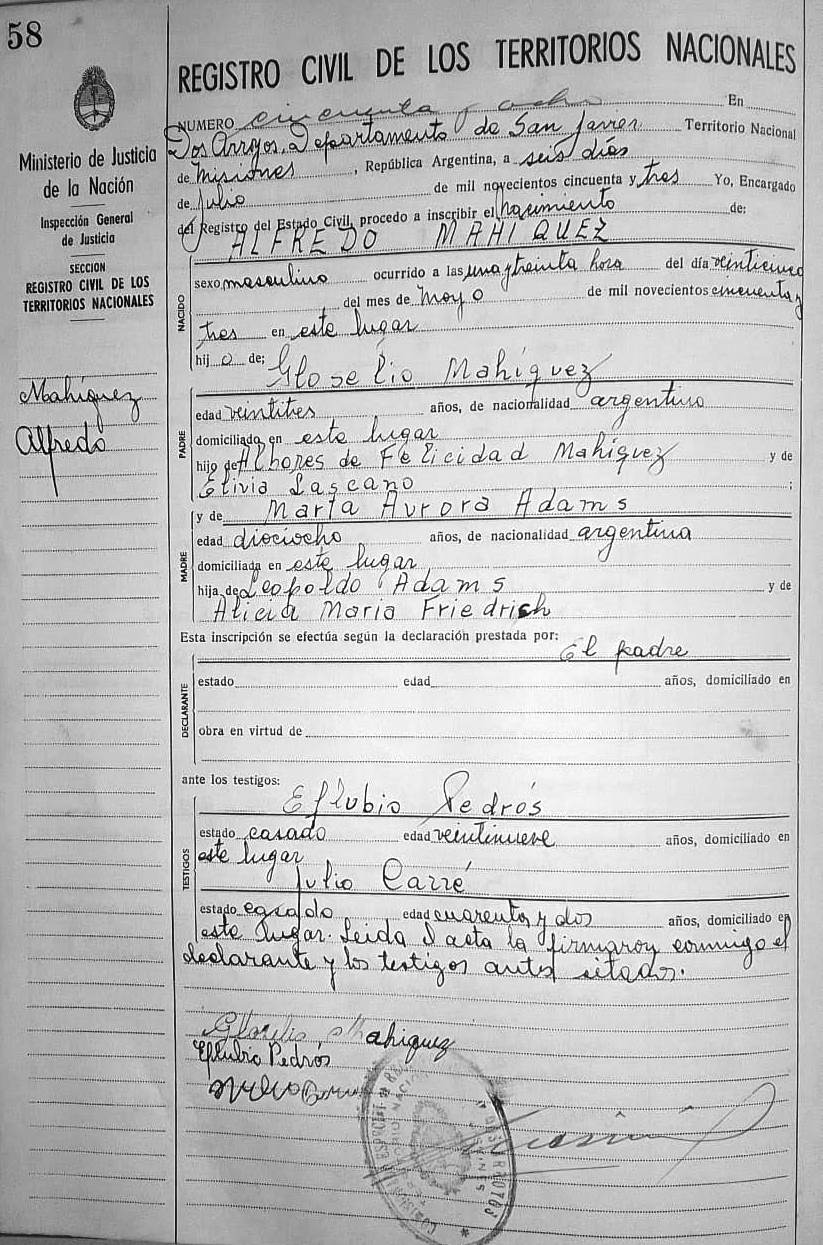 58
REGISTRO CIVIL DE LOS TERRITORIOS NACIONALES
Ministerio de Justicia
de la Nación
Inspección General
de Justicia
SECCION
REGISTRO CIVIL DE LOS
TERRITORIOS NACIONALES
Mahiquez
Alfredo
NUMERO cincuenta y ocho En
Dos Arroyos, Departamento de San Javier Territorio Nacional
de Misiones, República Argentina, a seis días
de Julio de mil novecientos cincuenta y tres Yo, Encargado
del Registro del Estado Civil, procedo a inscribir el nacimiento de:
ALFREDO MAHIQUEZ
NACIDO
sexo masculino ocurrido a las una y treinta hora del día veinticinco
del mes de Mayo de mil novecientos cincuenta y
tres en este lugar
hijo de: Gloselio Mahíquez
PADRE
edad veintitres años, de nacionalidad argentino
domiciliado en este lugar
hijo de Albores de Felicidad Mahiquez y de
Elivia Lascano ;
y de María Aurora Adams
MADRE
edad dieciocho años, de nacionalidad argentina
domiciliada en este lugar
hija de Leopoldo Adams y de
Alicia Maria Friedrich
Esta inscripción se efectúa según la declaración prestada por:
El padre
DECLARANTE
estado edad años, domiciliado en
obra en virtud de
ante los testigos:
Eflubio Pedrós
TESTIGOS
estado casado edad veintinueve años, domiciliado en
este lugar
Julio Carré
estado casado edad cuarenta y dos años, domiciliado en
este lugar. Leida el acta la firmaron conmigo el
declarante y los testigos antes sitados.
Mahiquez
Eflubio Pedrós